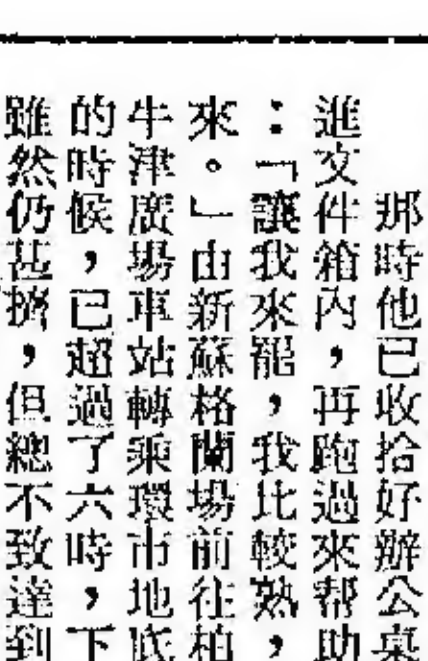 那時他已收拾好辦公桌
進文件箱內，再跑過來帮助
：「讓我來罷，我比較熟，
來。」由新蘇格蘭場前往柏
牛津廣場車站轉乘環市地底
的時候，已超過了六時，下
雖然仍甚擠，但總不致達到